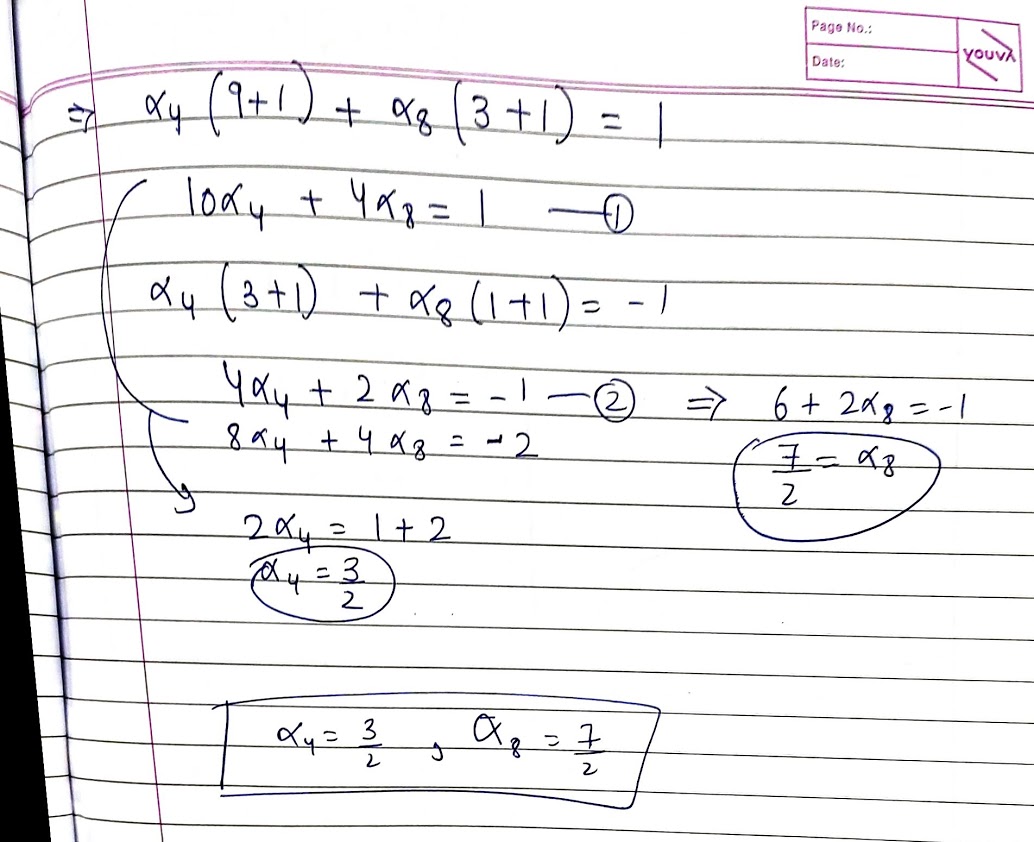 Page No.:
Date:
youva
⇒ α₄ (9+1) + α₈ (3+1) = 1
10α₄ + 4α₈ = 1 —①
α₄ (3+1) + α₈ (1+1) = -1
4α₄ + 2α₈ = -1 —② ⇒ 6 + 2α₈ = -1
8α₄ + 4α₈ = -2
7/2 = α₈
2α₄ = 1+2
α₄ = 3/2
α₄ = 3/2 , α₈ = 7/2